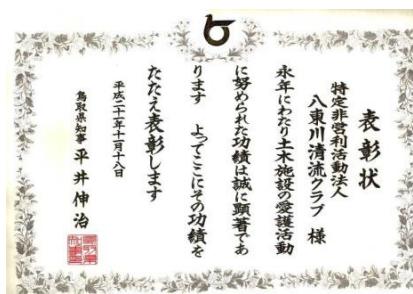 表彰状
特定非営利活動法人
八東川清流クラブ 様
永年にわたり土木施設の愛護活動
に努められた功績は誠に顕著であ
ります よってここにその功績を
たたえ表彰します
平成二十年十一月十八日
鳥取県知事 平井伸治